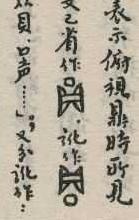 表示俯視鼎時所見
文已省作，訛作
从貝，口声……」。又分訛作…